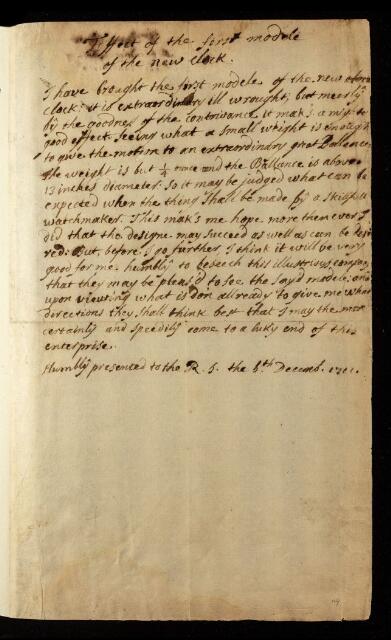 Effect of the first modele
of the new clock.
I have brought the first modele of the new
clock: it is extraordinary ill wrought; but meerly
by the goodnes of the contrivance it mak's a mighty
good effect. Seeing what a small weight is enough
to give the motion to an extraordinary great Ballance,
the weight is but 1/4 once and the Ballance is above
13 inches diameter. So it may be judged what can be
expected when the thing shall be made by a skillfull
watchmaker. This mak's me hope more then ever I
did that the designe may succeed as well as can be desi
red: But, before I go further I think it will be very
good for me humbly to beseech this illustrious company
that they may be pleas'd to see the sayd modele, and
upon viewing what is don allready to give me what
directions they shall think best that I may the more
certainly and speedily come to a luky end of this
enterprise.
Humbly presented to the R. S. the 8th Decemb.